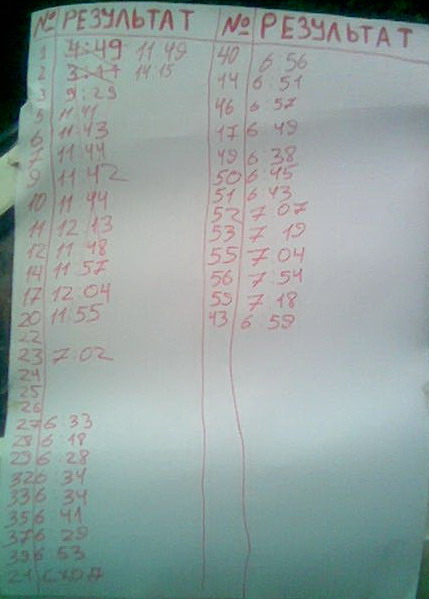 № РЕЗУЛЬТАТ
1 4:49 11 49
2 3:47 14 15
3 9:29
5 11 41
6 11 43
7 11 44
9 11 42
10 11 44
11 12 13
12 11 48
14 11 57
17 12 04
20 11 55
22
23 7:02
24
25
26
27 6 33
28 6 18
29 6 28
32 6 34
33 6 34
35 6 41
37 6 29
39 6 53
21 СХОД
№ РЕЗУЛЬТАТ
40 6 56
14 6 51
46 6 57
17 6 49
49 6 38
50 6 45
51 6 43
52 7 07
53 7 19
55 7 04
56 7 54
59 7 18
43 6 59